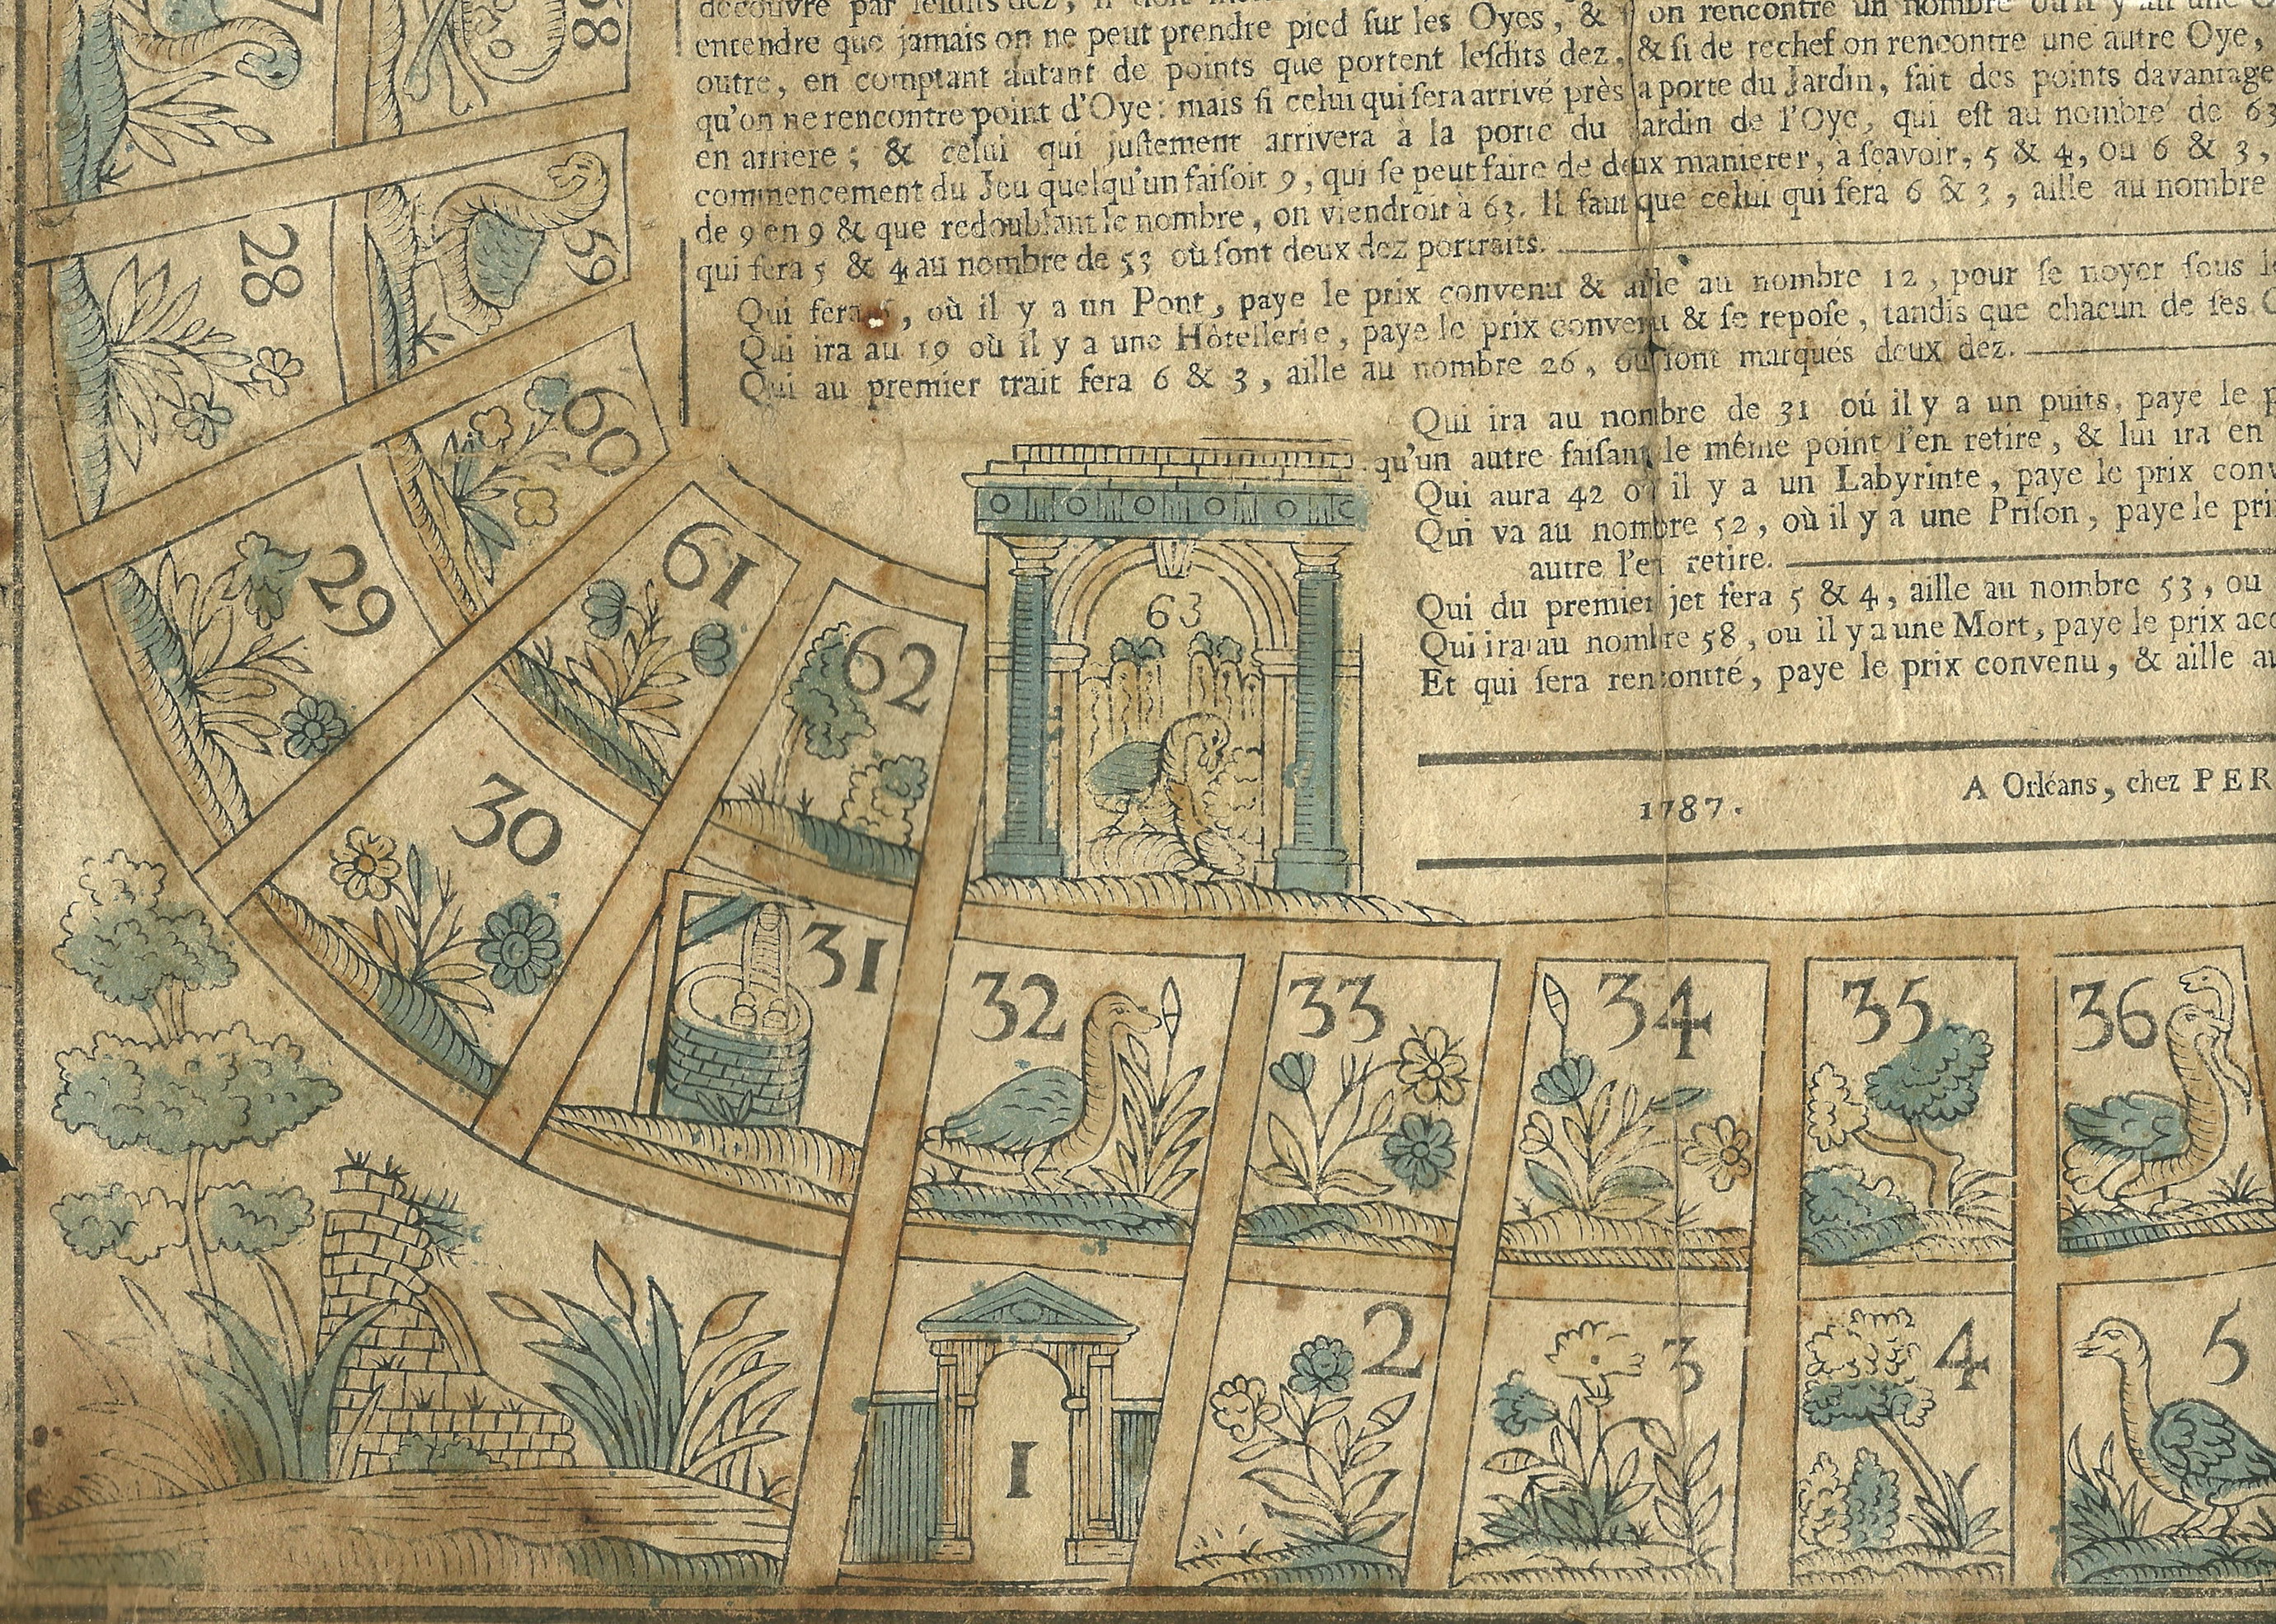 découvre par lesdits dez,
entendre que jamais on ne peut prendre pied sur les Oyes, & on rencontre un nombre où il y ait une
outre, en comptant autant de points que portent lesdits dez, & si de rechef on rencontre une autre Oye,
qu'on ne rencontre point d'Oye: mais si celui qui sera arrivé près a porte du Jardin, fait des points davantage
en arriere; & celui qui justement arrivera à la porte du ardin de l'Oye, qui est au nombre de 63
commencement du Jeu quelqu'un faisoit 9, qui se peut faire de deux manierer, à sçavoir, 5 & 4, ou 6 & 3,
de 9 en 9 & que redoublant le nombre, on viendroit à 63. Il faut que celui qui fera 6 & 3, aille au nombre
qui fera 5 & 4 au nombre de 53 où sont deux dez portraits.
Qui fera , où il y a un Pont, paye le prix convenu & aille au nombre 12, pour se noyer sous le
Qui ira au 19 où il y a une Hôtellerie, paye le prix convenu & se repose, tandis que chacun de ses
Qui au premier trait fera 6 & 3, aille au nombre 26, où sont marqués deux dez.
Qui ira au nombre de 31 oú il y a un puits, paye le
qu'un autre faisant le même point l'en retire, & lui ira en
Qui aura 42 où il y a un Labyrinte, paye le prix conv
Qui va au nombre 52, où il y a une Prison, paye le pri
autre l'en retire.
Qui du premier jet fera 5 & 4, aille au nombre 53, ou
Qui ira au nombre 58, ou il y a une Mort, paye le prix acc
Et qui sera rencontré, paye le prix convenu, & aille au
1787.
A Orléans, chez PER
58
28
59
60
29
61
62
63
30
31
32
33
34
35
36
1
2
3
4
5